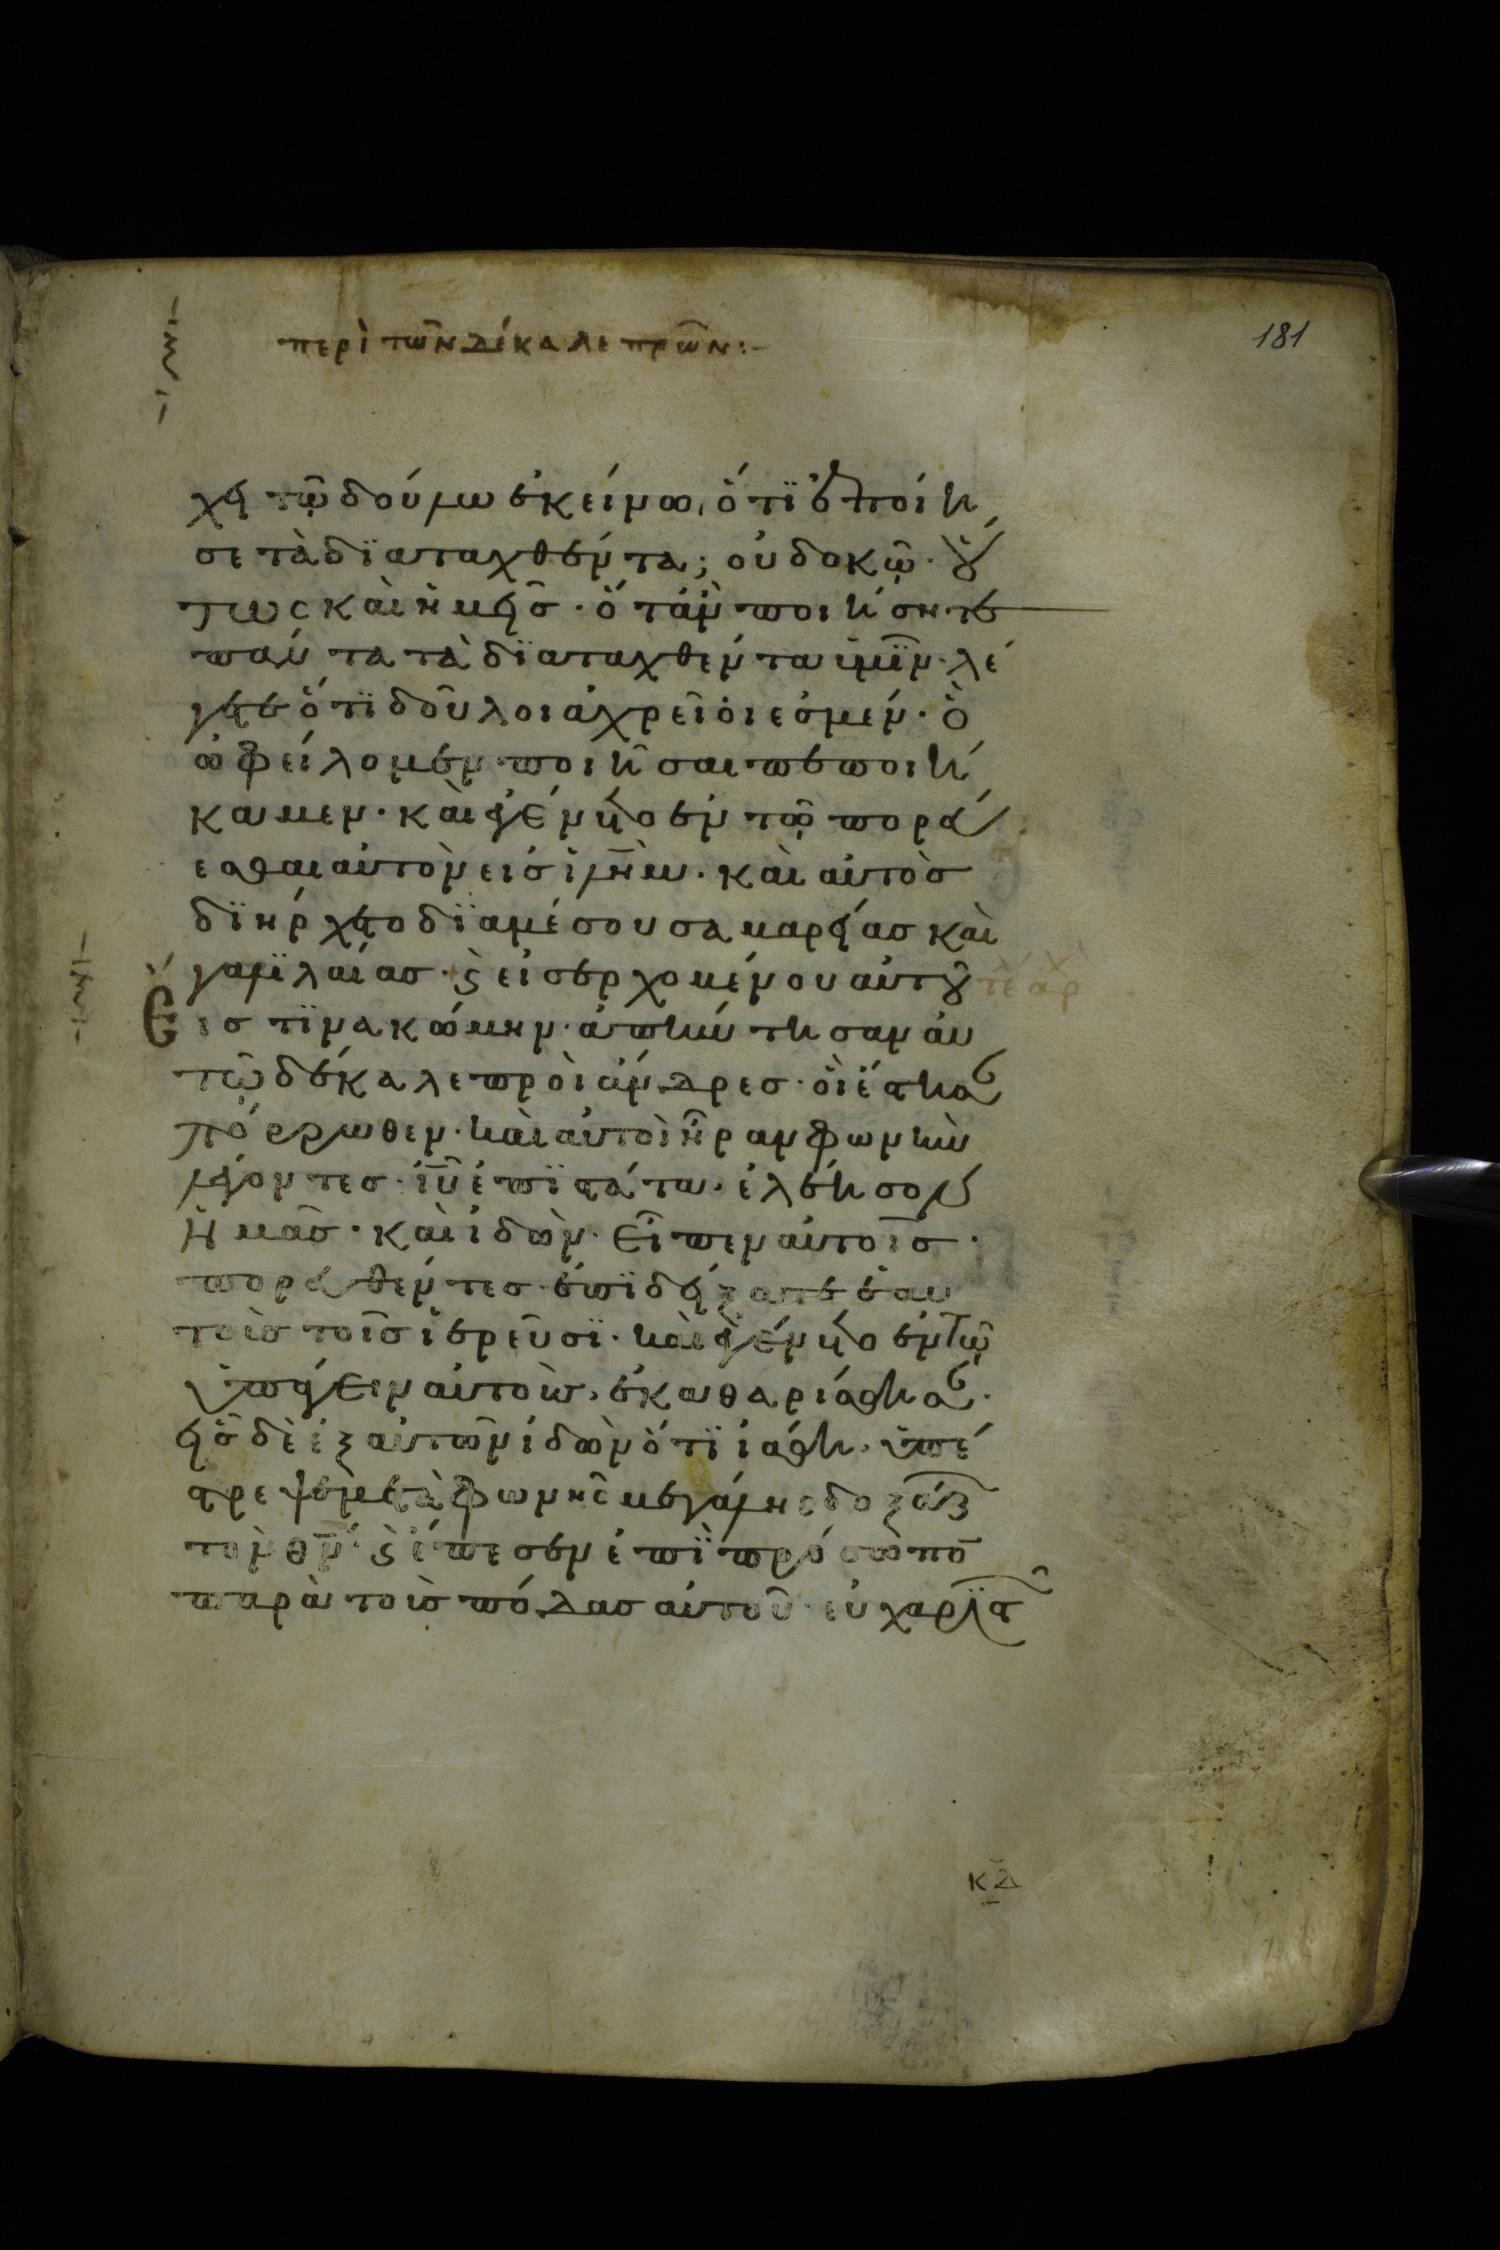 περὶ τῶν δέκα λεπρῶν:–
181
χει τῶ δούλω ἐκείνω, ὅτι ἐποίη
σε τὰ διαταχθέντα; οὐ δοκῶ· οὕ
τως καὶ ἡμεῖς· ὅταν ποιήσητε
πάντα τὰ διαταχθέντα ὑμῖν· λέ
γετε ὅτι δοῦλοι ἀχρεῖοι ἐσμέν· ὃ
ὠφείλομεν ποιῆσαι πεποιή
καμεν· καὶ ἐγένετο ἐν τῶ πορεύ
εσθαι αὐτὸν εἰς ἱλημ· καὶ αὐτὸς
διήρχετο διαμέσου σαμαρείας καὶ
γαλιλαίας· ϛ εἰσερχομένου αὐτοῦ
εἴς τινα κώμην· ἀπήντησαν αὐ
τῶ δέκα λεπροὶ ἄνδρες· οἳ ἔστησαν
πόρρωθεν· καὶ αὐτοὶ ἦραν φωνὴν
λέγοντες· ἰυ ἐπιστάτα· ἐλέησον
ἡμᾶς· καὶ ἰδὼν· εἶπεν αὐτοῖς·
πορευθέντες ἐπιδείξατε ἑαυ
τοὺς τοῖς ἱερεῦσι· καὶ ἐγένετο ἐν τῶ
ὑπάγειν αὐτοὺς, ἐκαθαρίσθησαν·
εἷς δὲ ἐξ αὐτῶν ἰδὼν ὅτι ἰάθη, ὑπέ
στρεψε μετὰ φωνῆς μεγάλης δοξάζ
τὸν θν· ϛ ἔπεσεν ἐπὶ πρόσωπο
παρὰ τοὺς πόδας αὐτοῦ εὐχαριστ
κδ